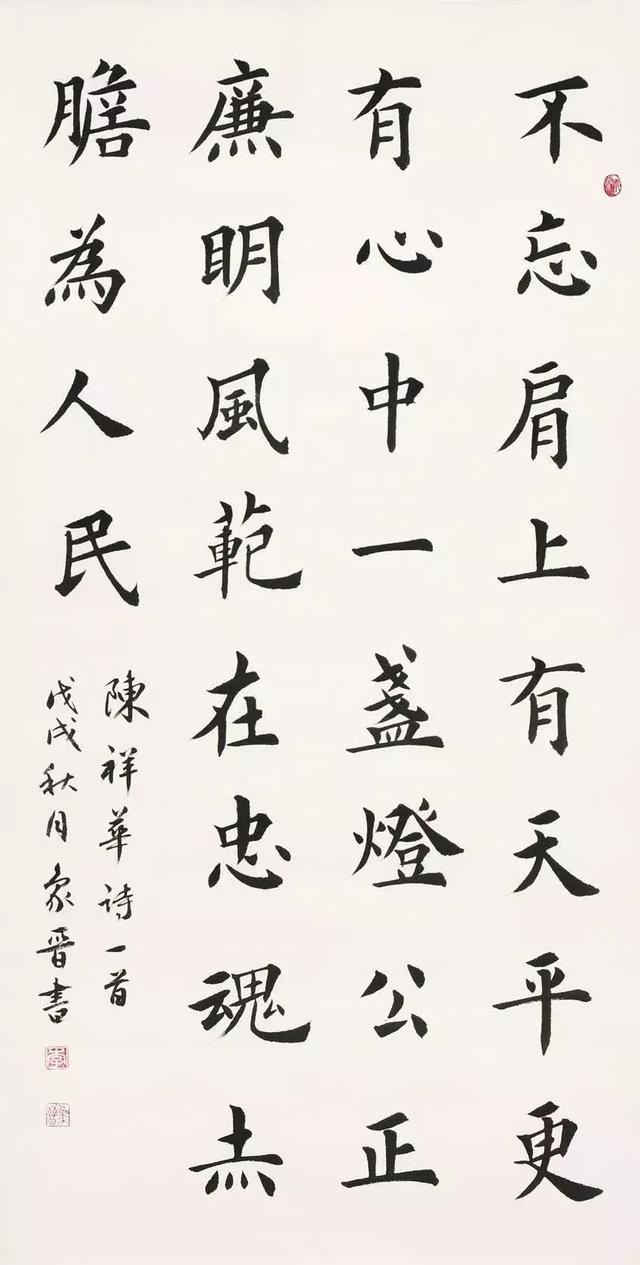 不忘肩上有天平更
有心中一盞燈公正
廉明風範在忠魂赤
膽為人民
陳祥華詩一首
戊戌秋月象晋書